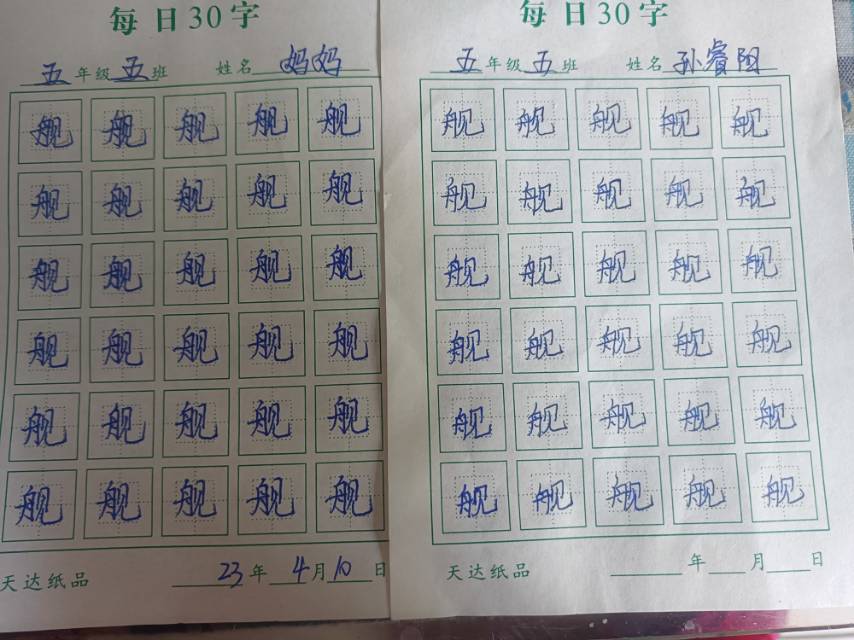 每日30字
五年级五班 姓名 妈妈
舰 舰 舰 舰 舰
舰 舰 舰 舰 舰
舰 舰 舰 舰 舰
舰 舰 舰 舰 舰
舰 舰 舰 舰 舰
舰 舰 舰 舰 舰
天达纸品 23年4月10日
每日30字
五年级五班 姓名 孙睿阳
舰 舰 舰 舰 舰
舰 舰 舰 舰 舰
舰 舰 舰 舰 舰
舰 舰 舰 舰 舰
舰 舰 舰 舰 舰
舰 舰 舰 舰 舰
天达纸品 年 月 日